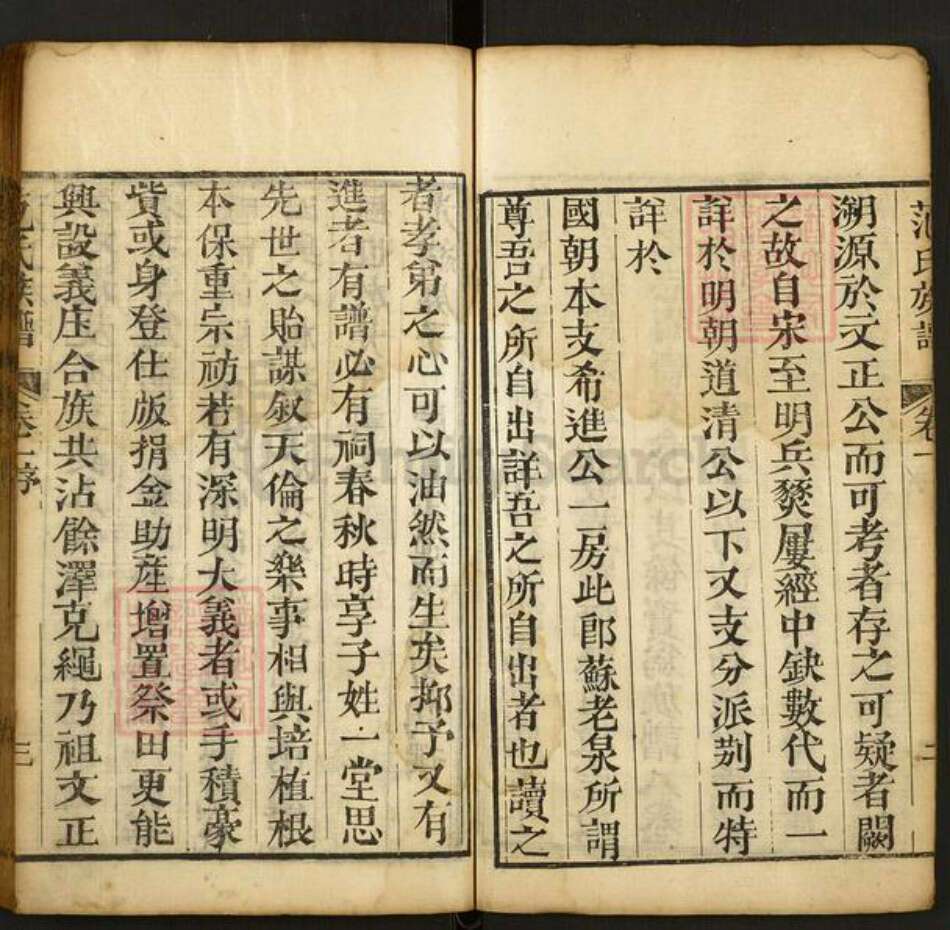 范氏族譜 卷一 二
溯源於文正公而可考者存之可疑者闕
之故自宋至明兵燹屢經中缺數代而一
詳於明朝道清公以下又支分派别而特
詳於
國朝本支希進公一房此卽蘇老泉所謂
尊吾之所自出詳吾之所自出者也讀之
者孝弟之心可以油然而生矣抑予又有
進者有譜必有祠春秋時享子姓一堂思
先世之貽謀叙天倫之樂事相與培植根
本保重宗祊若有深明大義者或手積豪
貲或身登仕版捐金助產增置祭田更能
興設義庄合族共沾餘澤克繩乃祖文正
范氏族譜 卷一序 三